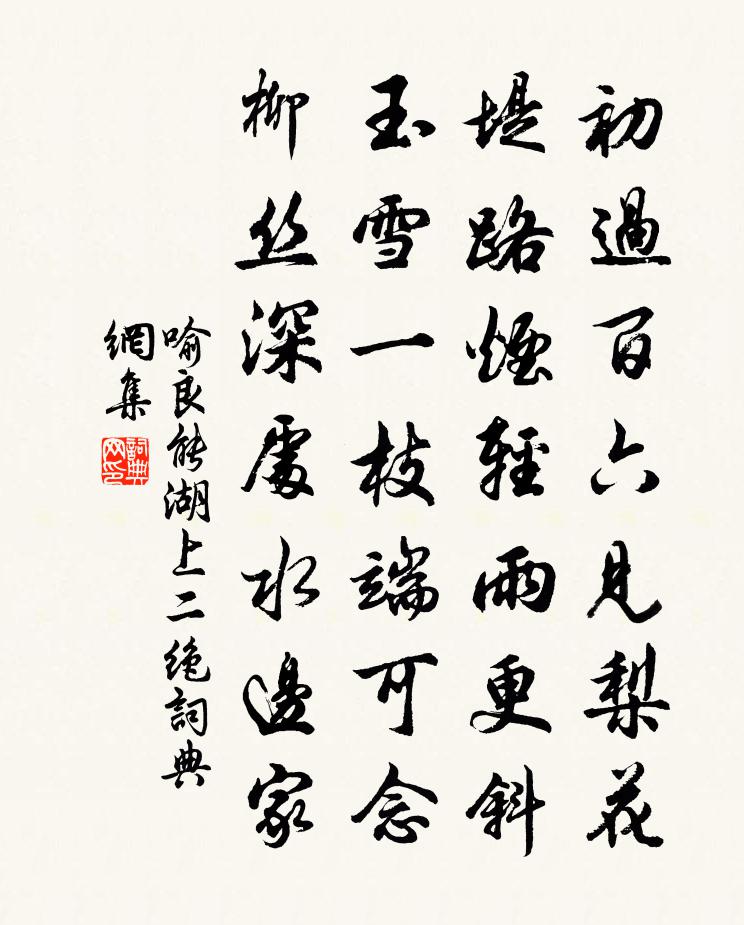 初過百六見梨花
堤路煙輕雨更斜
玉雪一枝端可念
柳丝深處水邊家
喻良能湖上二絶詞典
網集
詞典
网印